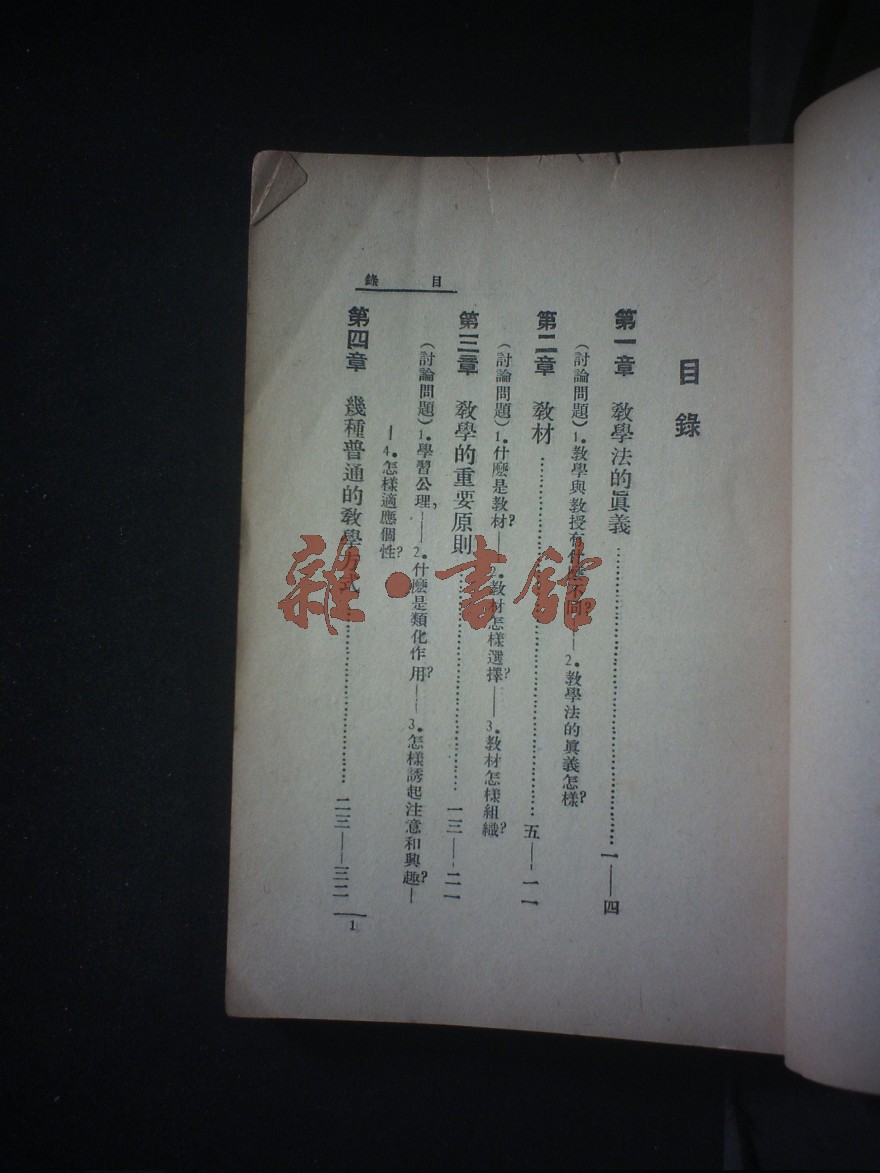 目錄
目錄
第一章 教學法的眞義……一——四
(討論問題)1.教學與教授有什麼不同?——2.教學法的眞義怎樣?
第二章 教材……五——一一
(討論問題)1.什麼是教材?——2.教材怎樣選擇?——3.教材怎樣組織?
第三章 教學的重要原則……一三——二一
(討論問題)1.學習公理,——2.什麼是類化作用?——3.怎樣誘起注意和興趣?—
—4.怎樣適應個性?
第四章 幾種普通的教學方式……二三——三二
1
雜·書館